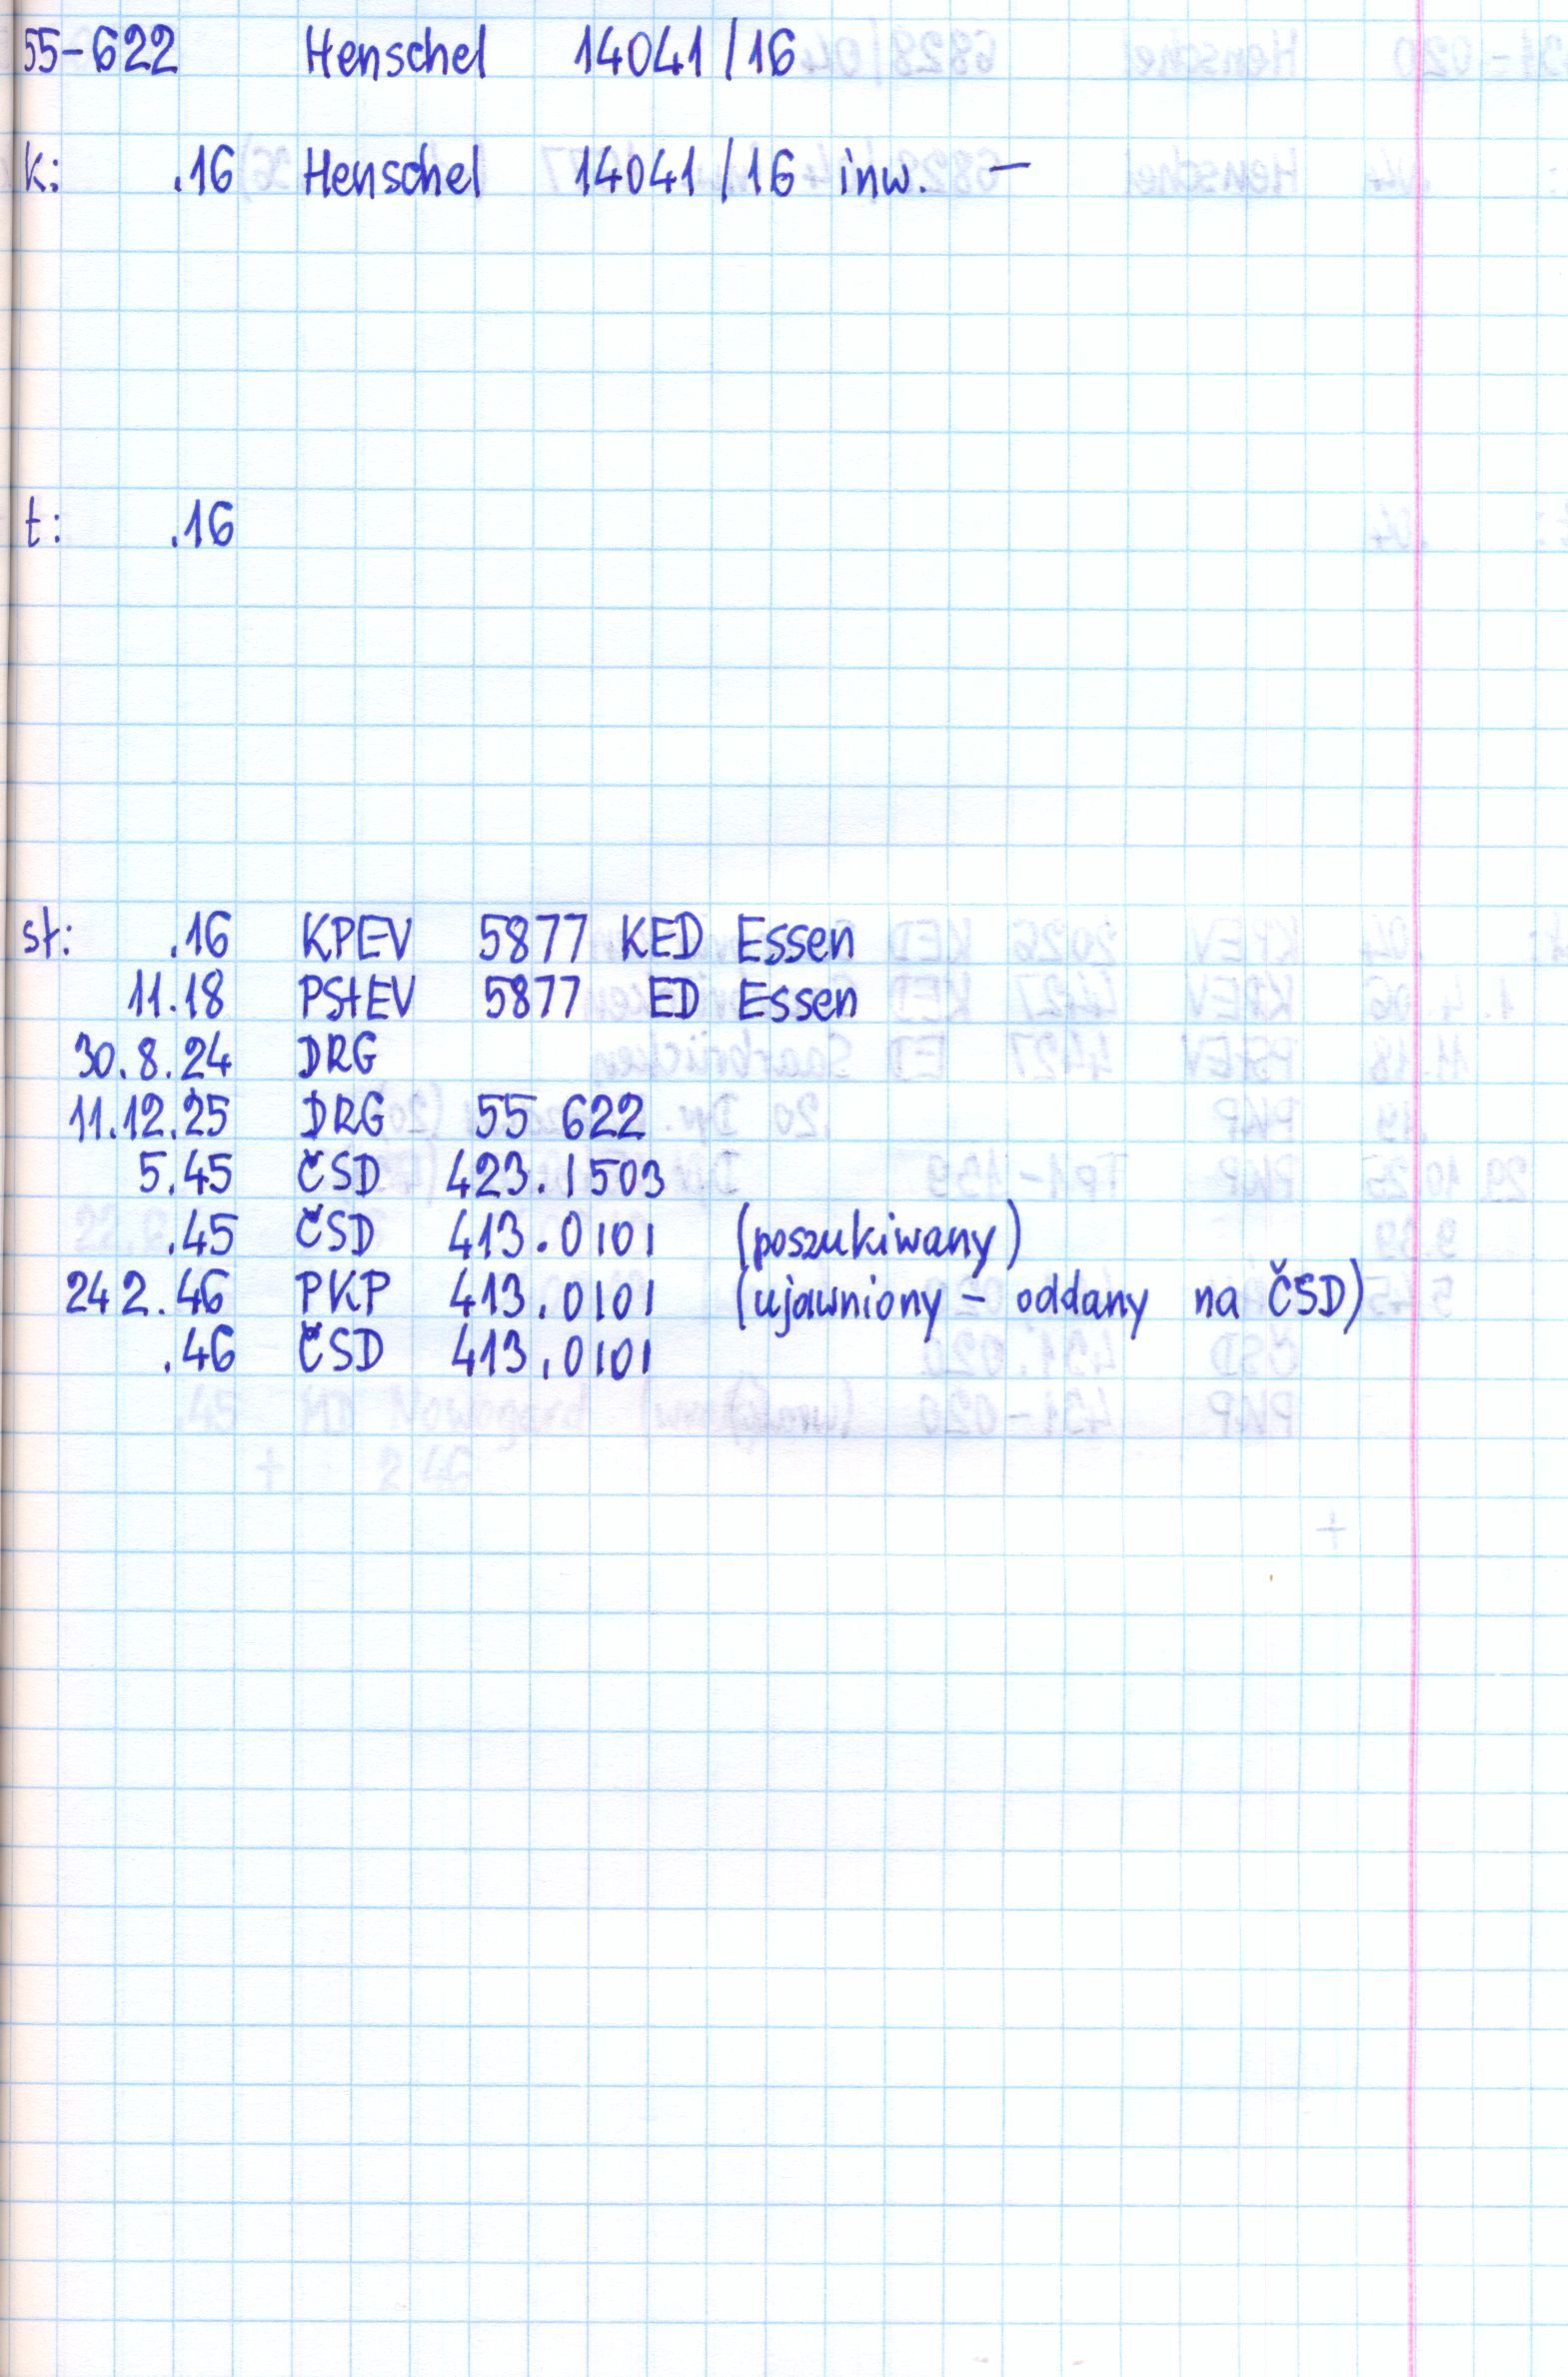 55-622 Henschel 14041/16
k: .16 Henschel 14041/16 inw. —
t: .16
st: .16 KPEV 5877 KED Essen
11.18 PStEV 5877 ED Essen
30.8.24 DRG
11.12.25 DRG 55 622
5.45 ČSD 423.1503
.45 ČSD 413.0101 (poszukiwany)
24 2.46 PKP 413.0101 (ujawniony - oddany na ČSD)
.46 ČSD 413.0101